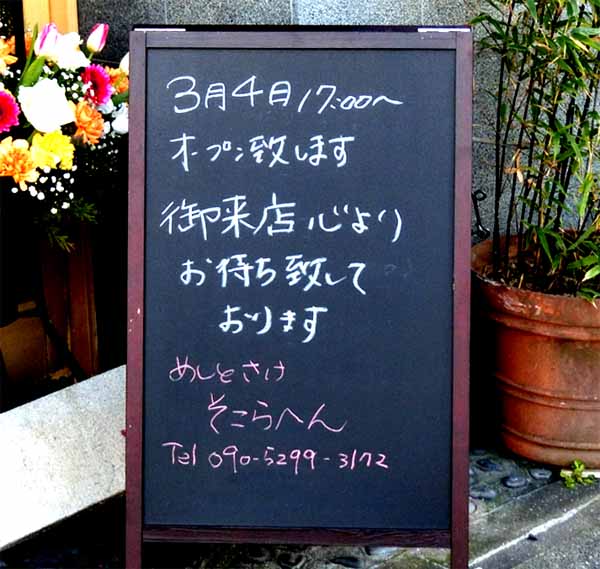 3月4日17:00〜
オープン致します
御来店心より
お待ち致して
おります
めしとさけ
そこらへん
Tel 090-5299-3172